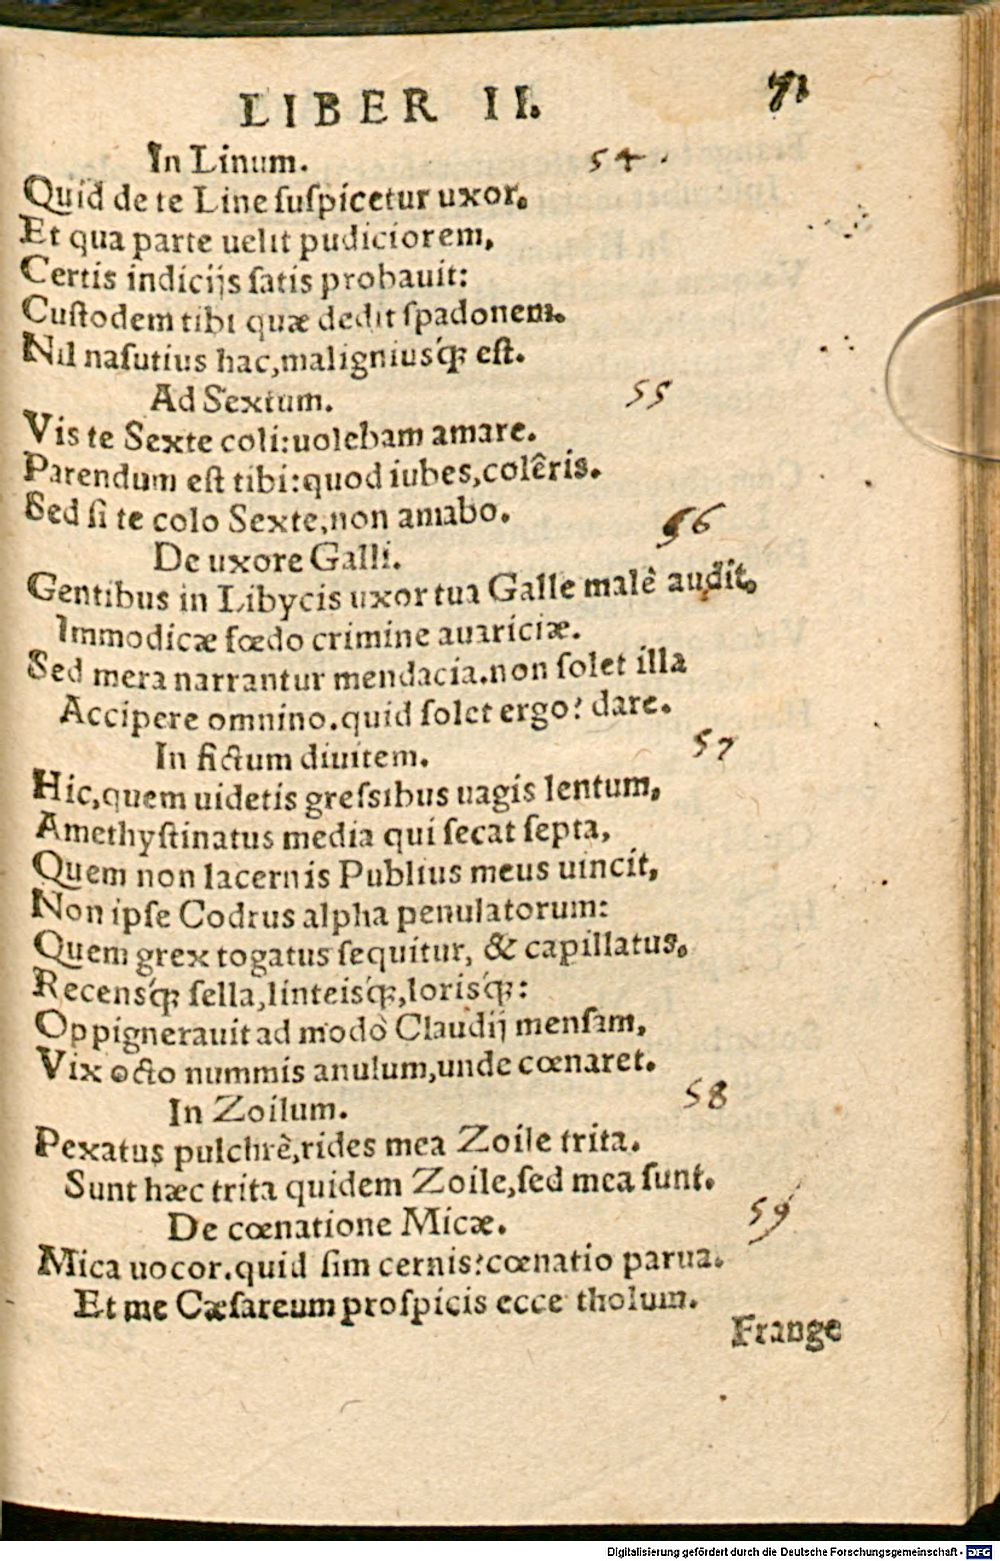 LIBER II. 71
In Linum. 54.
Quid de te Line suſpicetur uxor.
Et qua parte uelit pudiciorem,
Certis indicijs ſatis probauit:
Cuſtodem tibi quæ dedit ſpadonem.
Nil naſutius hac,maligniuśꝗ eſt.
Ad Sextum. 55
Vis te Sexte coli:uolebam amare.
Parendum eſt tibi:quod iubes,colêris.
Sed ſi te colo Sexte,non amabo.
De uxore Galli. 56
Gentibus in Libycis uxor tua Galle malê audit.
Immodicæ fœdo crimine auariciæ.
Sed mera narrantur mendacia.non ſolet illa
Accipere omnino.quid ſolet ergo? dare.
In fictum diuitem. 57
Hic,quem uidetis greſsibus uagis lentum,
Amethyſtinatus media qui ſecat ſepta,
Quem non lacernis Publius meus uincit,
Non ipſe Codrus alpha penulatorum:
Quem grex togatus ſequitur, & capillatus.
Recenśꝗ ſella,linteiśꝗ,loriśꝗ:
Oppignerauit ad modò Claudij menſam,
Vix octo nummis anulum,unde cœnaret.
In Zoilum. 58
Pexatus pulchrè,rides mea Zoile trita.
Sunt hæc trita quidem Zoile,ſed mea ſunt.
De cœnatione Micæ. 59
Mica uocor.quid ſim cernis?cœnatio parua.
Et me Cæſareum proſpicis ecce tholum.
Frange
Digitalisierung gefördert durch die Deutsche Forschungsgemeinschaft - DFG